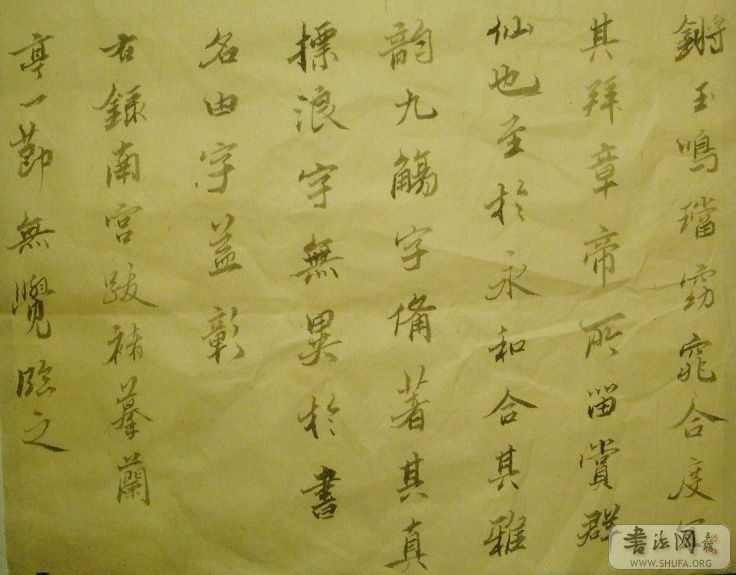 鏘玉鳴璫窈窕合度
其拜章帝所留賞群
仙也至於永和合其雅
韵九觴字備著其真
摽浪字無異於書
名由字益彰
右錄南宮跋褚摹蘭
亭一勤無覺臨之
書法网
WWW.SHUFA.ORG